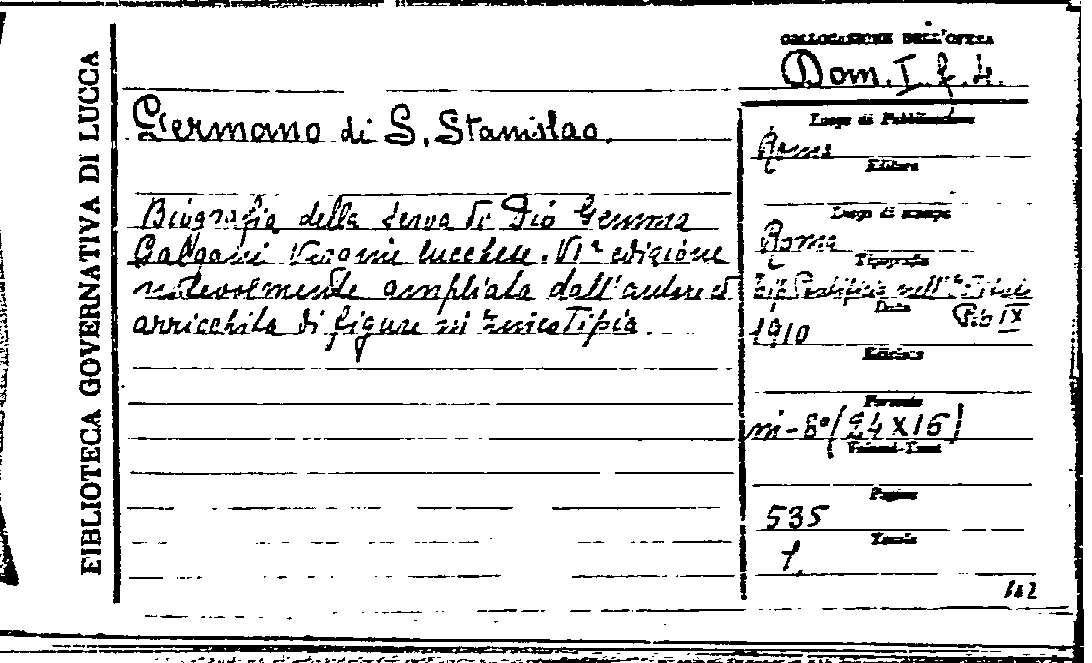 BIBLIOTECA GOVERNATIVA DI LUCCA
COLLOCAZIONE DELL'OPERA
Dom. I. f. 4.
Germano di S. Stanislao.
Biografia della serva di Dio Gemma
Galgani Vergine lucchese. VIª edizione
notevolmente ampliata dall'autore ed
arricchita di figure in zincotipia.
Luogo di Pubblicazione
Roma
Editore
Luogo di stampa
Roma
Tipografia
Tip. Pontificia nell'Istituto
Pio IX
Data
1910
Edizione
Formato
in-8° (24X16)
Volumi-Tomi
Pagine
535
Tavole
1.